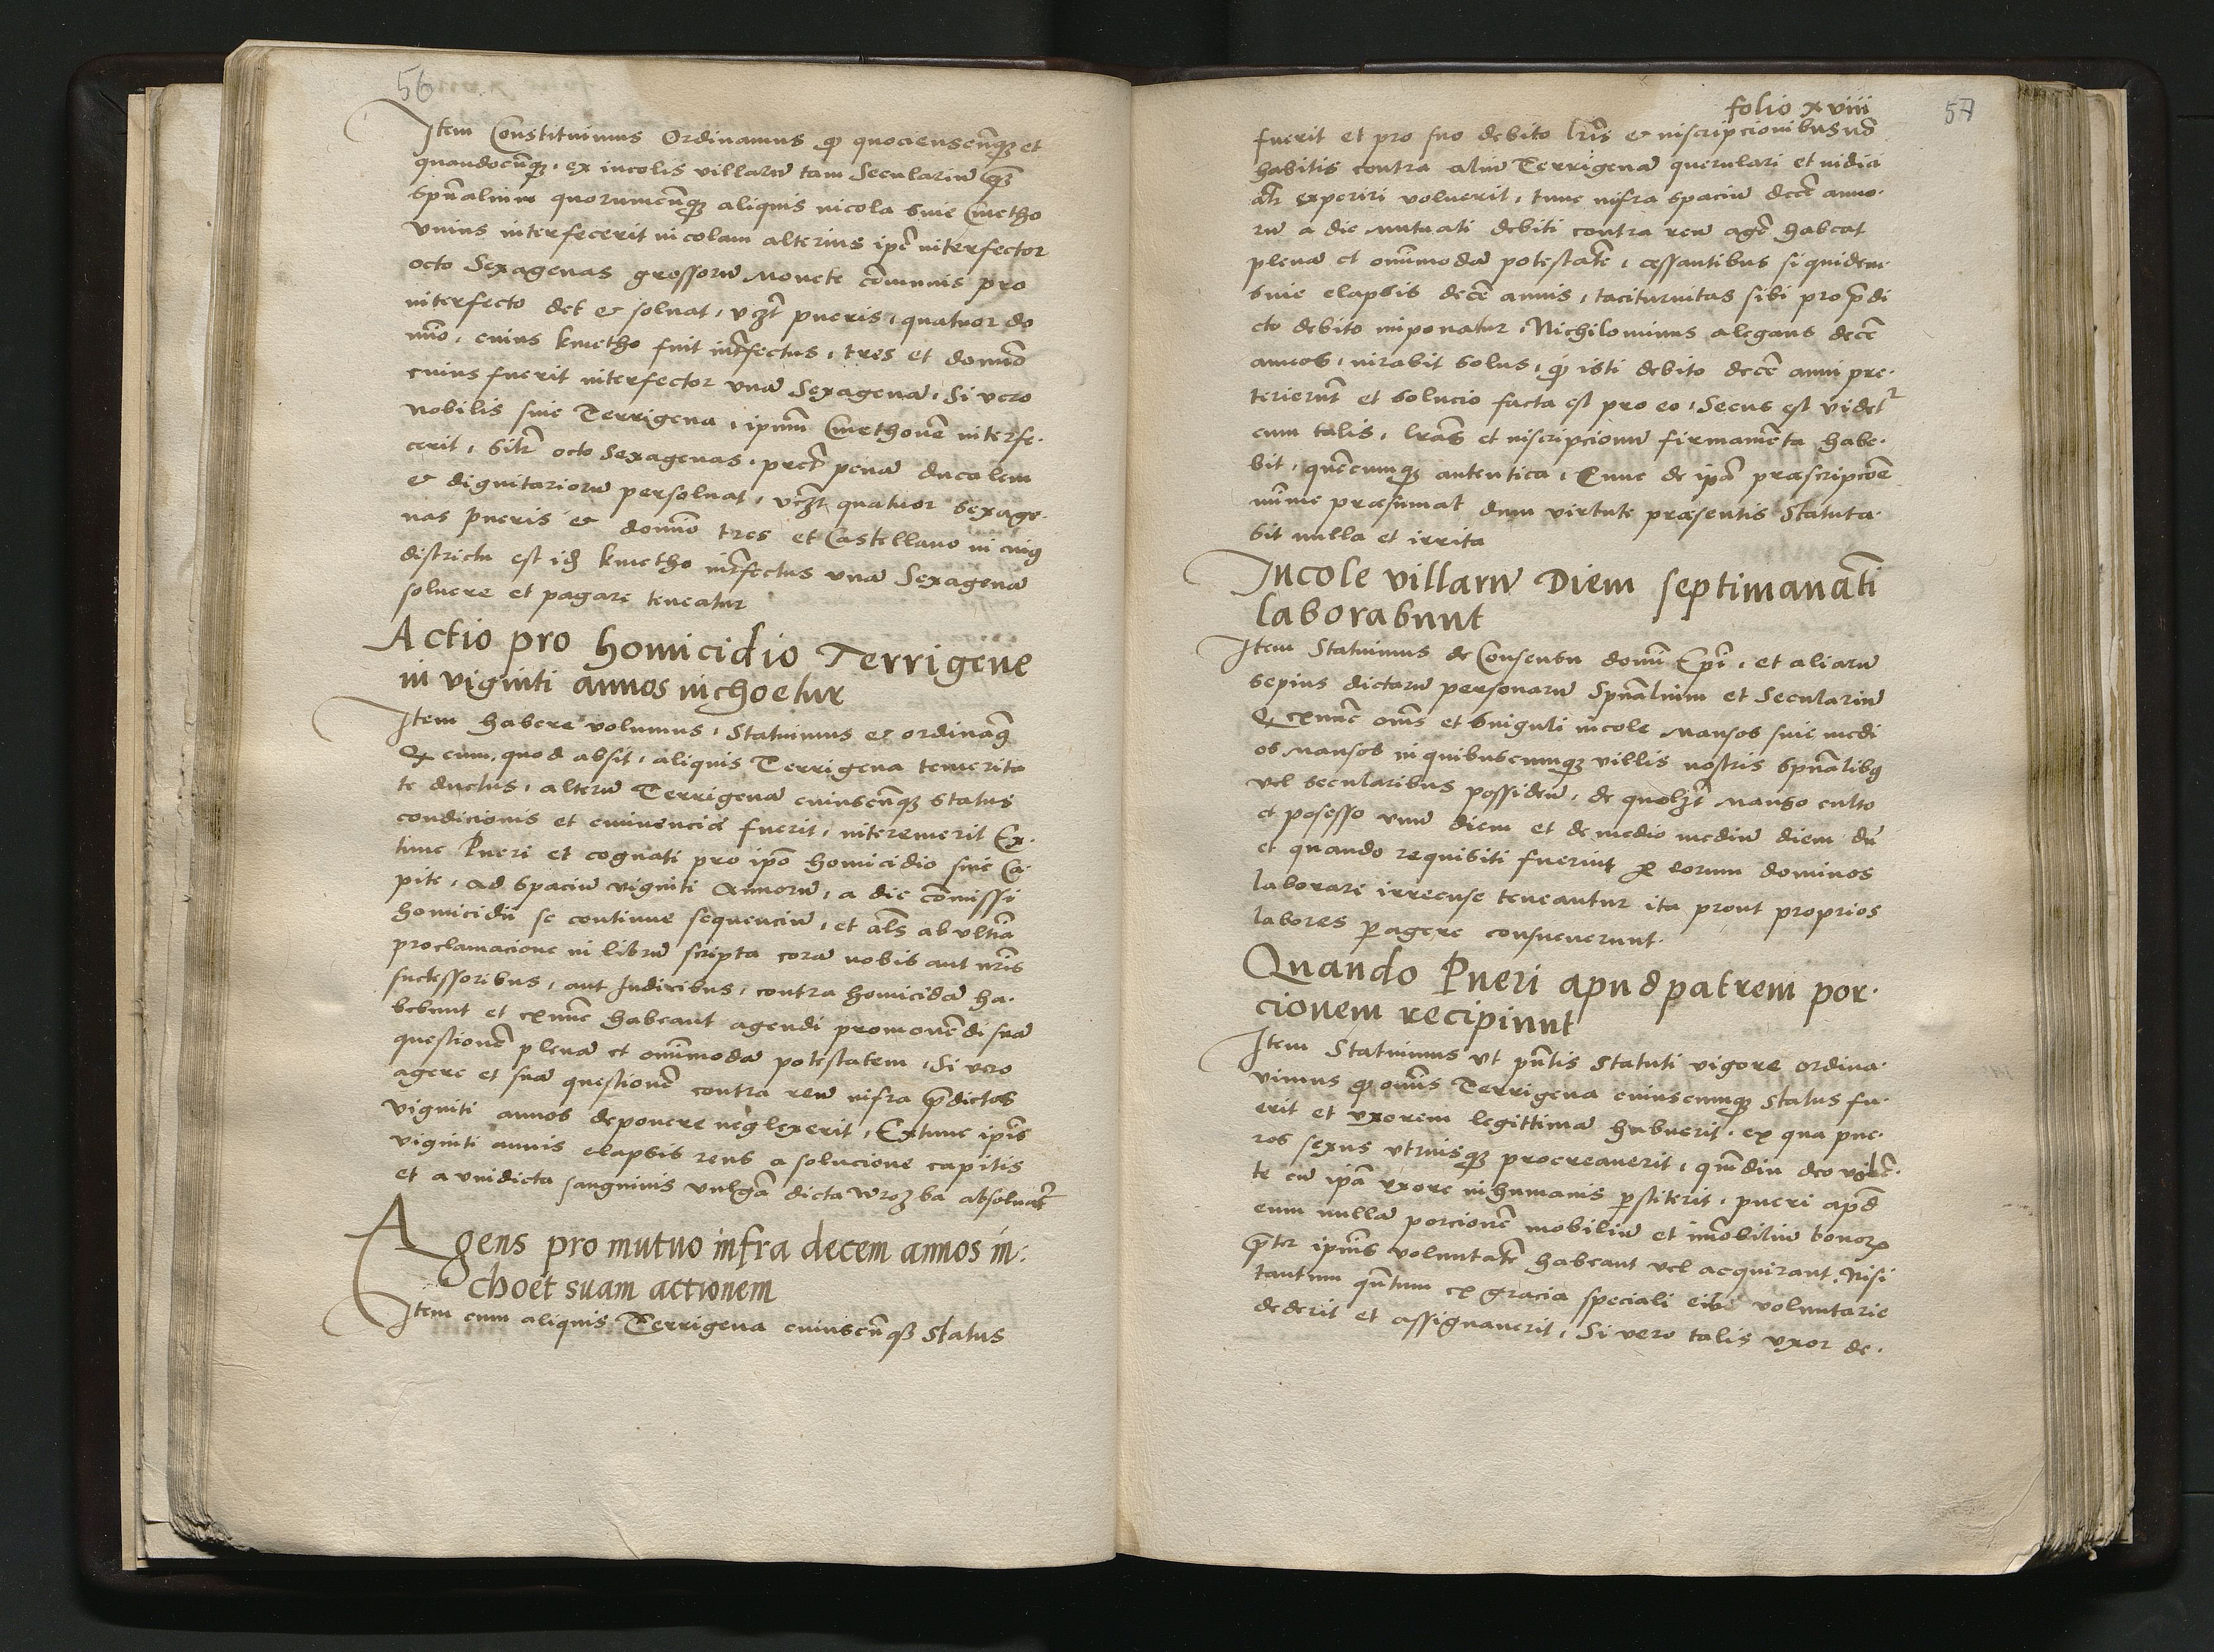 56
Item Constituimus Ordinamus ꝙ quocienscunqꝫ et
quandocunqꝫ, ex incolis villarū tam Seculariū qꝫ
Spūalium quorumcunqꝫ aliquis incola siue Cmetho
vnius interfecerit incolam alterius ipē interfector
octo Sexagenas grossorū Monete cōmunis pro
interfecto det & soluat, vꝫt pueris, quatuor do
mīo, cuius kmetho fuit int̄fectus, tres et domīo
cuius fuerit interfector vnā Sexagenā, Si vero
Nobilis siue Terrigena, ipsum Cmethonē interfe.
cerit, silr̄ octo Sexagenas, pret̄ penā ducalem
& dignitariorū persoluat, vcꝫt quatuor sexage.
nas pueris & domīo tres et Castellano in cuiꝯ
districtu est idē kmetho int̄fectus vnā Sexagenā
soluere et pagare teneatur
Actio pro homicidio Terrigene
in viginti annos inchoetur
Item habere volumus, Statuimus & ordinamꝯ
Qꝙ cum, quod absit, aliquis Terrigena temerita
te ductus, alterū Terrigenā cuiuscunqꝫ status
condicionis et eminencie fuerit, interemerit Ex.
tunc Pueri et cognati pro ipō homicidio siue Ca.
pite, ad spaciū viginti Annorū, a die cōmissi
homicidii se continue sequenciū, et als̄ ab vltīa
proclamacione in librū scripta corā nobis aut nr̄is
successoribus, aut Iudicibus, contra homicidā ha.
bebunt et extunc habeant agendi promouēdi suā
questionē plenā et omīmodā potestatem, Si vero
agere et suā questionē contra reū infra p̄dictos
viginti annos deponere neglexerit, Extunc ipīs
viginti annis elapsis reus a solucione capitis
et a vindicta sanguinis vulgār dicta wrozba absoluat̄
Agens pro mutuo infra decem annos in:
choet suam actionem
Item cum aliquis Terrigena cuiuscūqꝫ Status
folio xviii
57
fuerit et pro suo debito lr̄is & inscripcionibus nō
habitis contra aliū Terrigenā querulari et iudici
alr̄ experiri voluerit, tunc infra spaciū decē anno.
rū a die mutuati debiti contra reū agē habeat
plenā et omīmodā potestatē, cessantibus siquidem
siue elapsis decē annis, taciturnitas sibi pro p̄di
cto debito imponatur, Nichilominus alegans decē
annos, iurabit solus, ꝙ isti debito decē anni pre.
terierūt et solucio facta est pro eo, Secus est videlr
cum talis, lrās et inscripcionū firmamēta habe.
bit, quēcumqꝫ autentica, Tunc de ipā præscripcōe
nūme præsumat dum virtute præsentis Statuta.
sit nulla et irrita
Incole villarū Diem septimanati
laborabunt
Item Statuimus de Consensu domī Ep̄i, et aliarū
sepius dictarū personarū Spūalium et Seculariū
Qꝙ extunc oms̄ et singuli incole Mansos siue medi
os Mansos in quibuscumqꝫ villis nostris Spūalibꝯ
vel secularibus possidēn, de quolꝫt Manso culto
et posesso vnū diem et de medio mediū diem dū
et quando requisiti fuerint ꝑ eorum dominos
laborare irrecuse teneantur ita prout proprios
labores ꝑagere consueuerunt.
Quando Pueri apud patrem por.
cionem recipiunt
Item Statuimus vt pn̄tis Statuti vigore ordina.
vimus ꝙ omīs Terrigena cuiuscumqꝫ Status fu.
erit et vxorem legittimā habuerit, ex qua pue.
ros sexus vtriusqꝫ procreauerit, qmdiu deo volē.
te cū ipā vxore in humanis ꝑstiterit, pueri apd̄
eum nullā porcionē mobiliū et immobiliū bonoꝝ
p̄ter ipsius voluntatē habeant vel acquirant, Nisi
tantum qūtum ex gracia speciali eis voluntarie
dederit et assignauerit, Si vero talis vxor de.